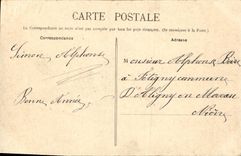 CARTE POSTALE
La Correspondance au recto n'est pas acceptée par tous les pays étrangers. (Se renseigner à la Poste.)
Correspondance
Adresse
Simon Alphonse
Bonne Année
Monsieur Alphonse
à
D'Aligny en Morvan
Nièvre